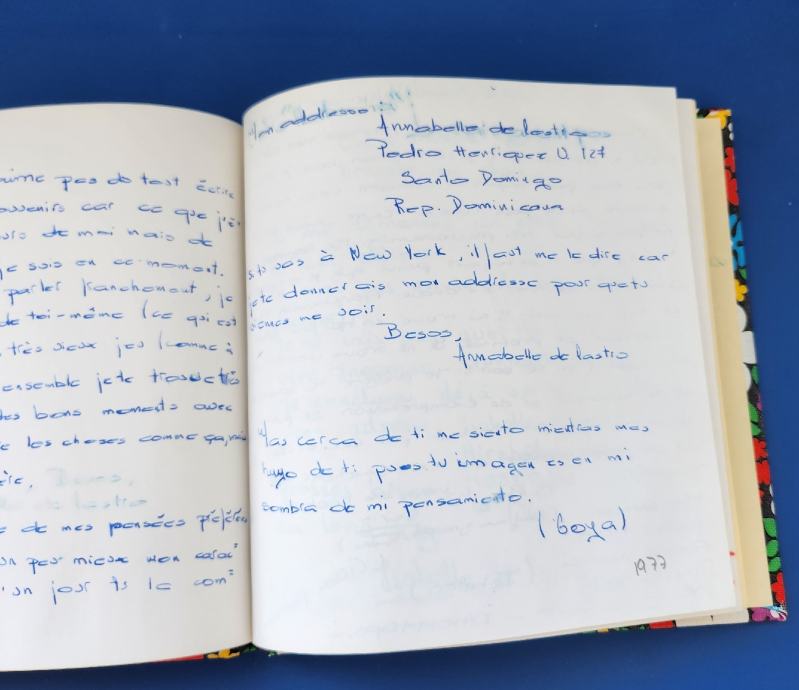 aime pas do tost écrire
souvenirs car ce que j'é-
ours de moi mais de
je suis en ce moment.
parler franchement, je
de toi-même (ce qui est
très vieux jeu (comme à
ensemble je te trouve très
des bons moments avec
e les choses comme ça, mais
ère,
e de mes pensées préférées
un peu mieux mon carac=
un jour tu le com=
Mon addresse:
Annabelle de Castro
Pedro Henriquez U. 127
Santo Domingo
Rep. Dominicana
si tu vas à New York, il faut me le dire car
je te donnerais mon addresse pour que tu
viennes me voir.
Besos,
Annabelle de Castro
Mas cerca de ti me siento mientras mas
huyo de ti pues tu imagen es en mi
sombra de mi pensamiento.
(Goya)
1977